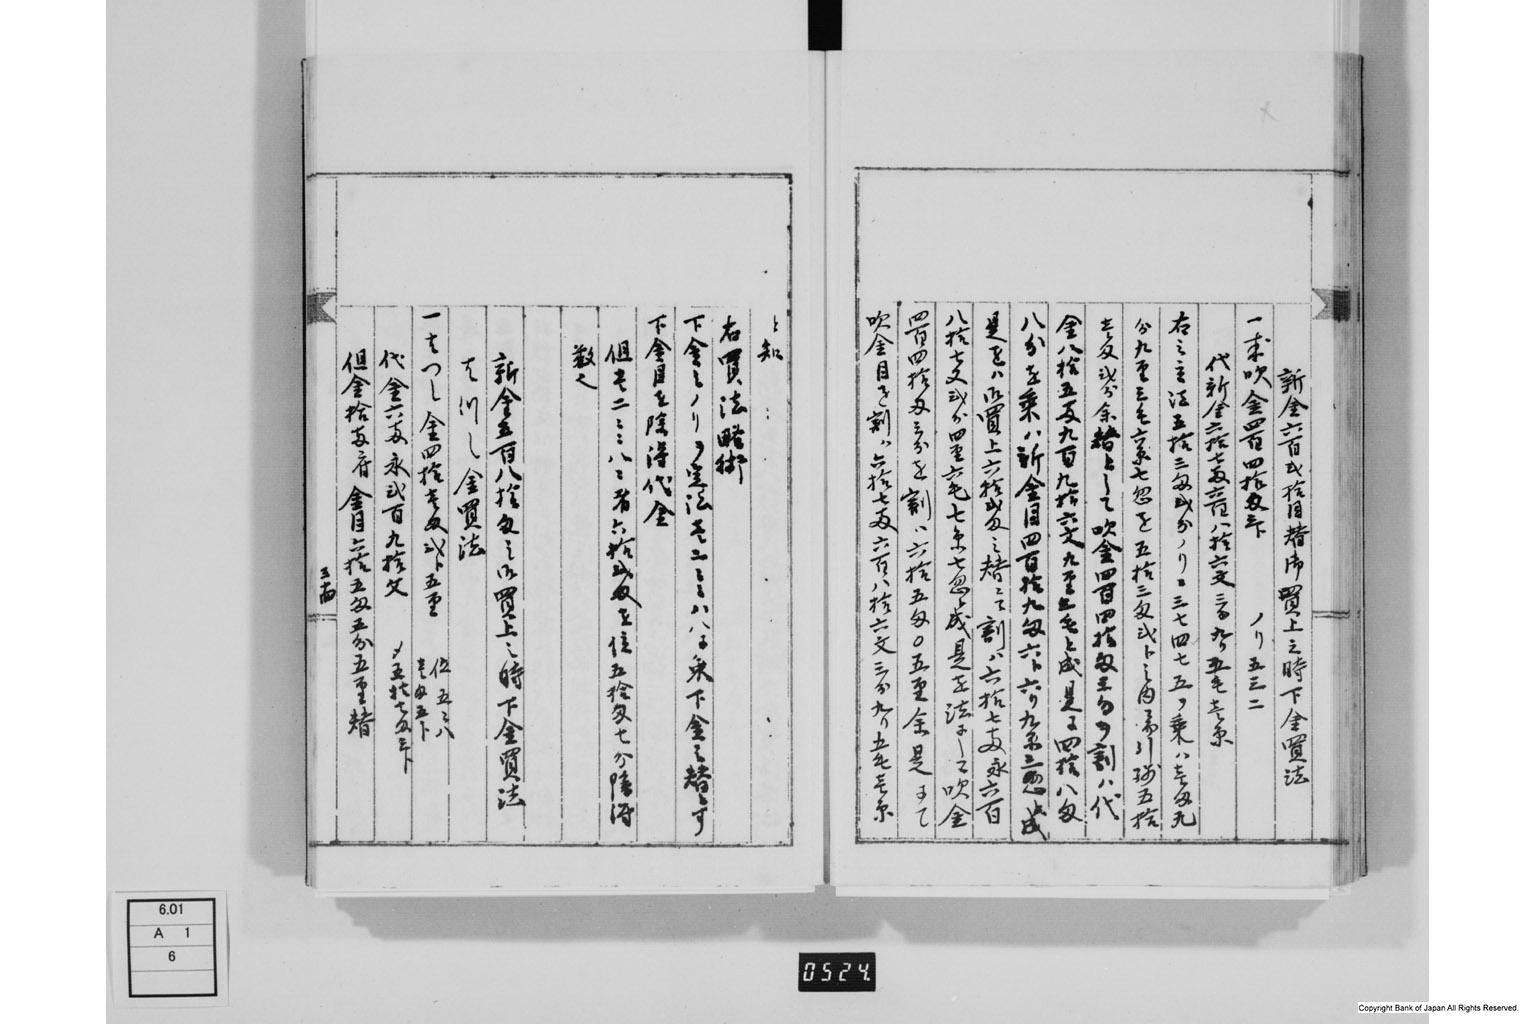 新金六百弐拾目替御買上之時下金買法
一来吹金四百四拾匁三卜 ノリ五三二
代新金六拾七両六百八拾六文三分九リ五毛壱糸
右之主法五拾三匁弐分ノリニ三七四七五ヲ乗ハ壱匁九
分九厘三毛六糸七忽を五拾三匁弐卜之内 引残五拾
壱匁弐分余 替として吹金四百四拾匁三分ヲ割ハ代
金八拾五両九百九拾六文九厘五毛と成是に四拾八匁
八分を乗ハ新金目四百拾九匁六卜六リ九糸三忽成
是をハ御買上六拾弐匁之替ニて割ハ六拾七両永六百
八拾七文弐分四厘六毛七糸七忽成是を法にして吹金
四百四拾匁三分を割ハ六拾五匁〇五厘余是にて
吹金目を割ハ六拾七両六百八拾六文三分九リ五毛壱糸
と知
右買法略術
下金之ノリヲ実法壱二三三八八に乗下金之替とす
下金目を除得代金
但壱二三三八ニ者六拾弐匁を位五拾匁七分除得
数也
新金五百八拾匁之御買上之時下金買法
はつし金買法
一はつし金四拾壱匁弐卜五厘 位五三八 壱匁五卜
代金六両永弐百九拾文 〆五拾七匁三卜
但金拾両府金目六拾五匁五分五厘替
三十四
6.01
A 1
6
0524
Copyright Bank of Japan All Rights Reserved.